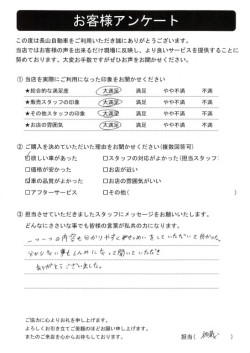 お客様アンケート
この度は長山自動車をご利用いただき誠にありがとうございます。
当店ではお客様の声を出来るだけ現場に反映し、より良いサービスを提供することに
努めております。大変お手数ですがぜひお声をお聞かせください。
① 当店を実際にご利用になった印象をお聞かせください
★総合的な満足度 大満足 満足 やや不満 不満
★販売スタッフの印象 大満足 満足 やや不満 不満
★その他スタッフの印象 大満足 満足 やや不満 不満
★お店の雰囲気 大満足 満足 やや不満 不満
② ご購入を決めていただいた理由をお聞かせください(複数回答可)
欲しい車があった □スタッフの対応がよかった(担当スタッフ:
□価格が安かった □お店が近い
車の品質がよかった □お店の雰囲気がいい
□アフターサービス □その他( )
③ 担当させていただきましたスタッフにメッセージをお願いいたします。
どんなにささいな事でも皆様の言葉が私共の力になります。
一つ一つの内容も分かりやすく
分からない事も
ありがとうございました。
ご協力に心よりお礼を申し上げます。
よろしくお引き立てご愛顧のほどお願い申し上げます。
またのご来店を心からお待ちしております。 担当( )